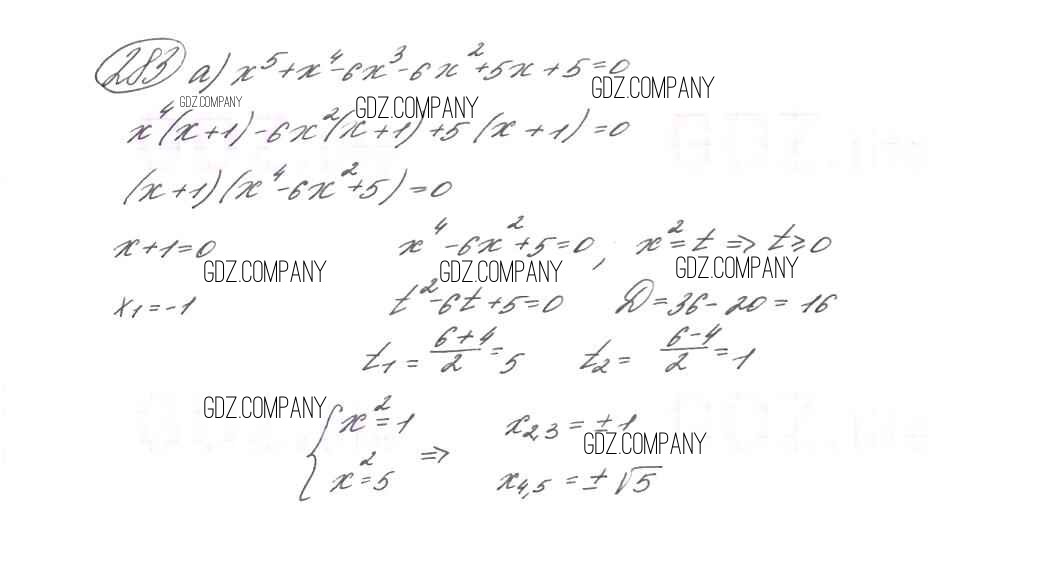 283 а) x⁵+x⁴-6x³-6x²+5x+5=0
GDZ.COMPANY GDZ.COMPANY GDZ.COMPANY
x⁴(x+1)-6x²(x+1)+5(x+1)=0
(x+1)(x⁴-6x²+5)=0
x+1=0 x⁴-6x²+5=0; x²=t => t≥0
GDZ.COMPANY GDZ.COMPANY GDZ.COMPANY
x₁=-1 t²-6t+5=0 D=36-20=16
t₁=(6+4)/2=5 t₂=(6-4)/2=1
GDZ.COMPANY
{x²=1 x₂,₃=±1
GDZ.COMPANY
x²=5 => x₄,₅=±√5